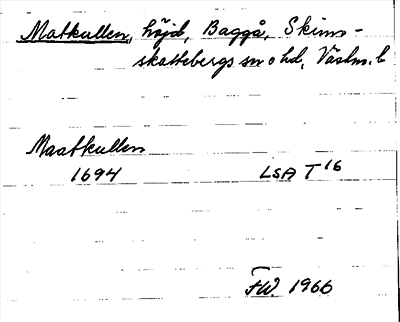 Matkullen, höjd, Baggå, Skinn-
skattebergs sn o hd, Västm. l
Maatkullen
1694 LSA T 16
FW 1966